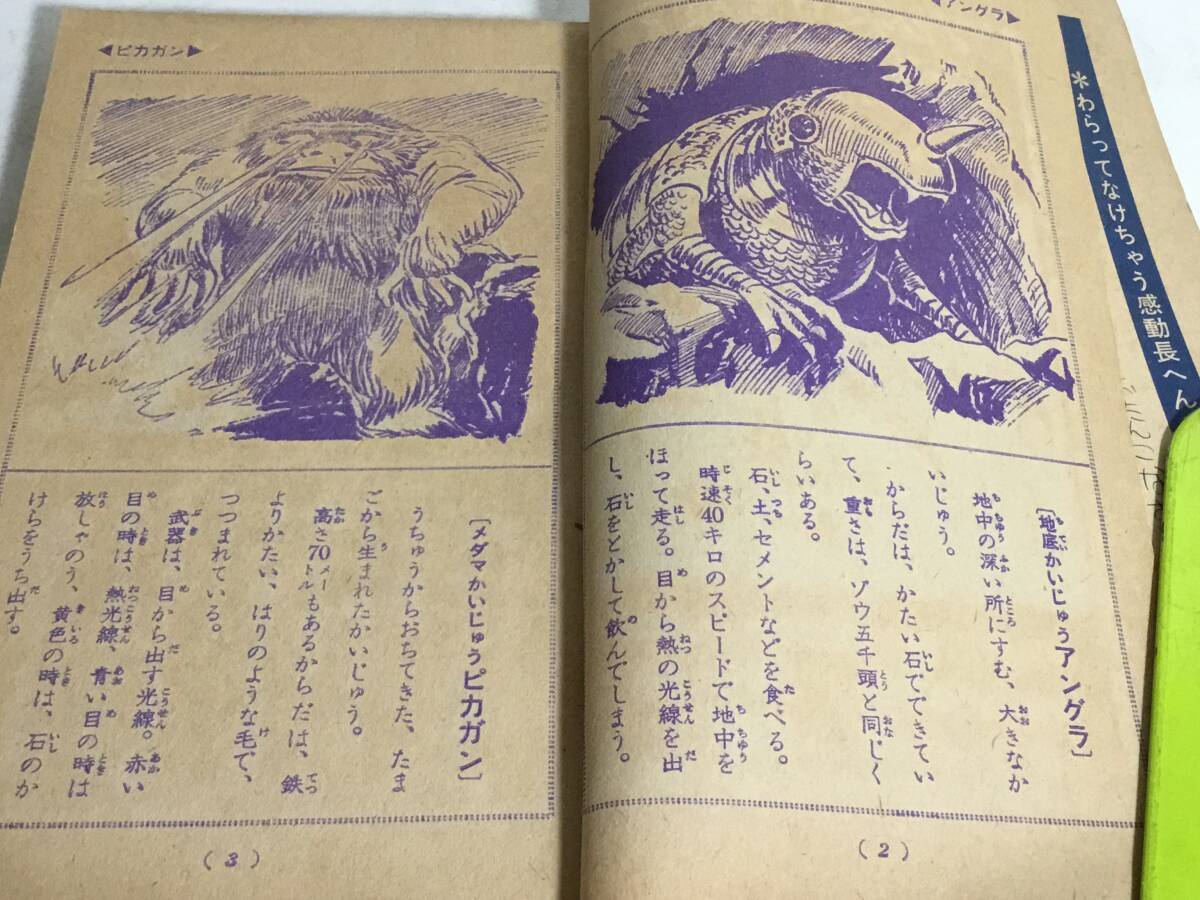 *わらってなけちゃう感動長へん
◀アングラ▶
［地底かいじゅうアングラ］
地中の深い所にすむ、大きなか
いじゅう。
からだは、かたい石でできてい
て、重さは、ゾウ五千頭と同じく
らいある。
石、土、セメントなどを食べる。
時速40キロのスピードで地中を
ほって走る。目から熱の光線を出
し、石をとかして飲んでしまう。
(2)
◀ピカガン▶
［メダマかいじゅうピカガン］
うちゅうからおちてきた、たま
ごから生まれたかいじゅう。
高さ70メートルもあるからだは、鉄
よりかたい、はりのような毛で、
つつまれている。
武器は、目から出す光線。赤い
目の時は、熱光線、青い目の時は
放しゃのう、黄色の時は、石のか
けらをうち出す。
(3)